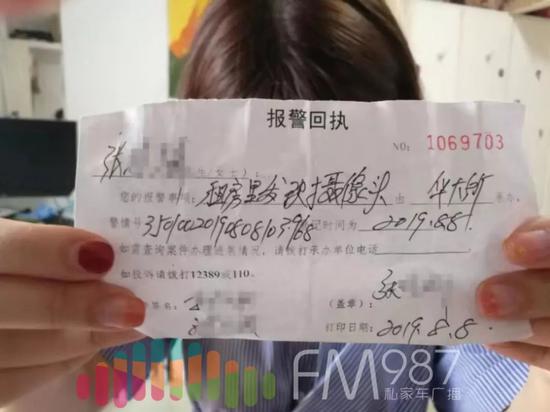 报警回执
NO: 1069703
张
生/女士）：
您的报警事项：租房里发现摄像头 由 华大所 承办，
警情号 记时间为 2019.8.8.
如需查询案件办理进展情况，请拨打承办单位电话
如投诉请拨打12389或110。
签名：
（盖章）：
打印日期：2019.8.8.
FM987
私家车广播